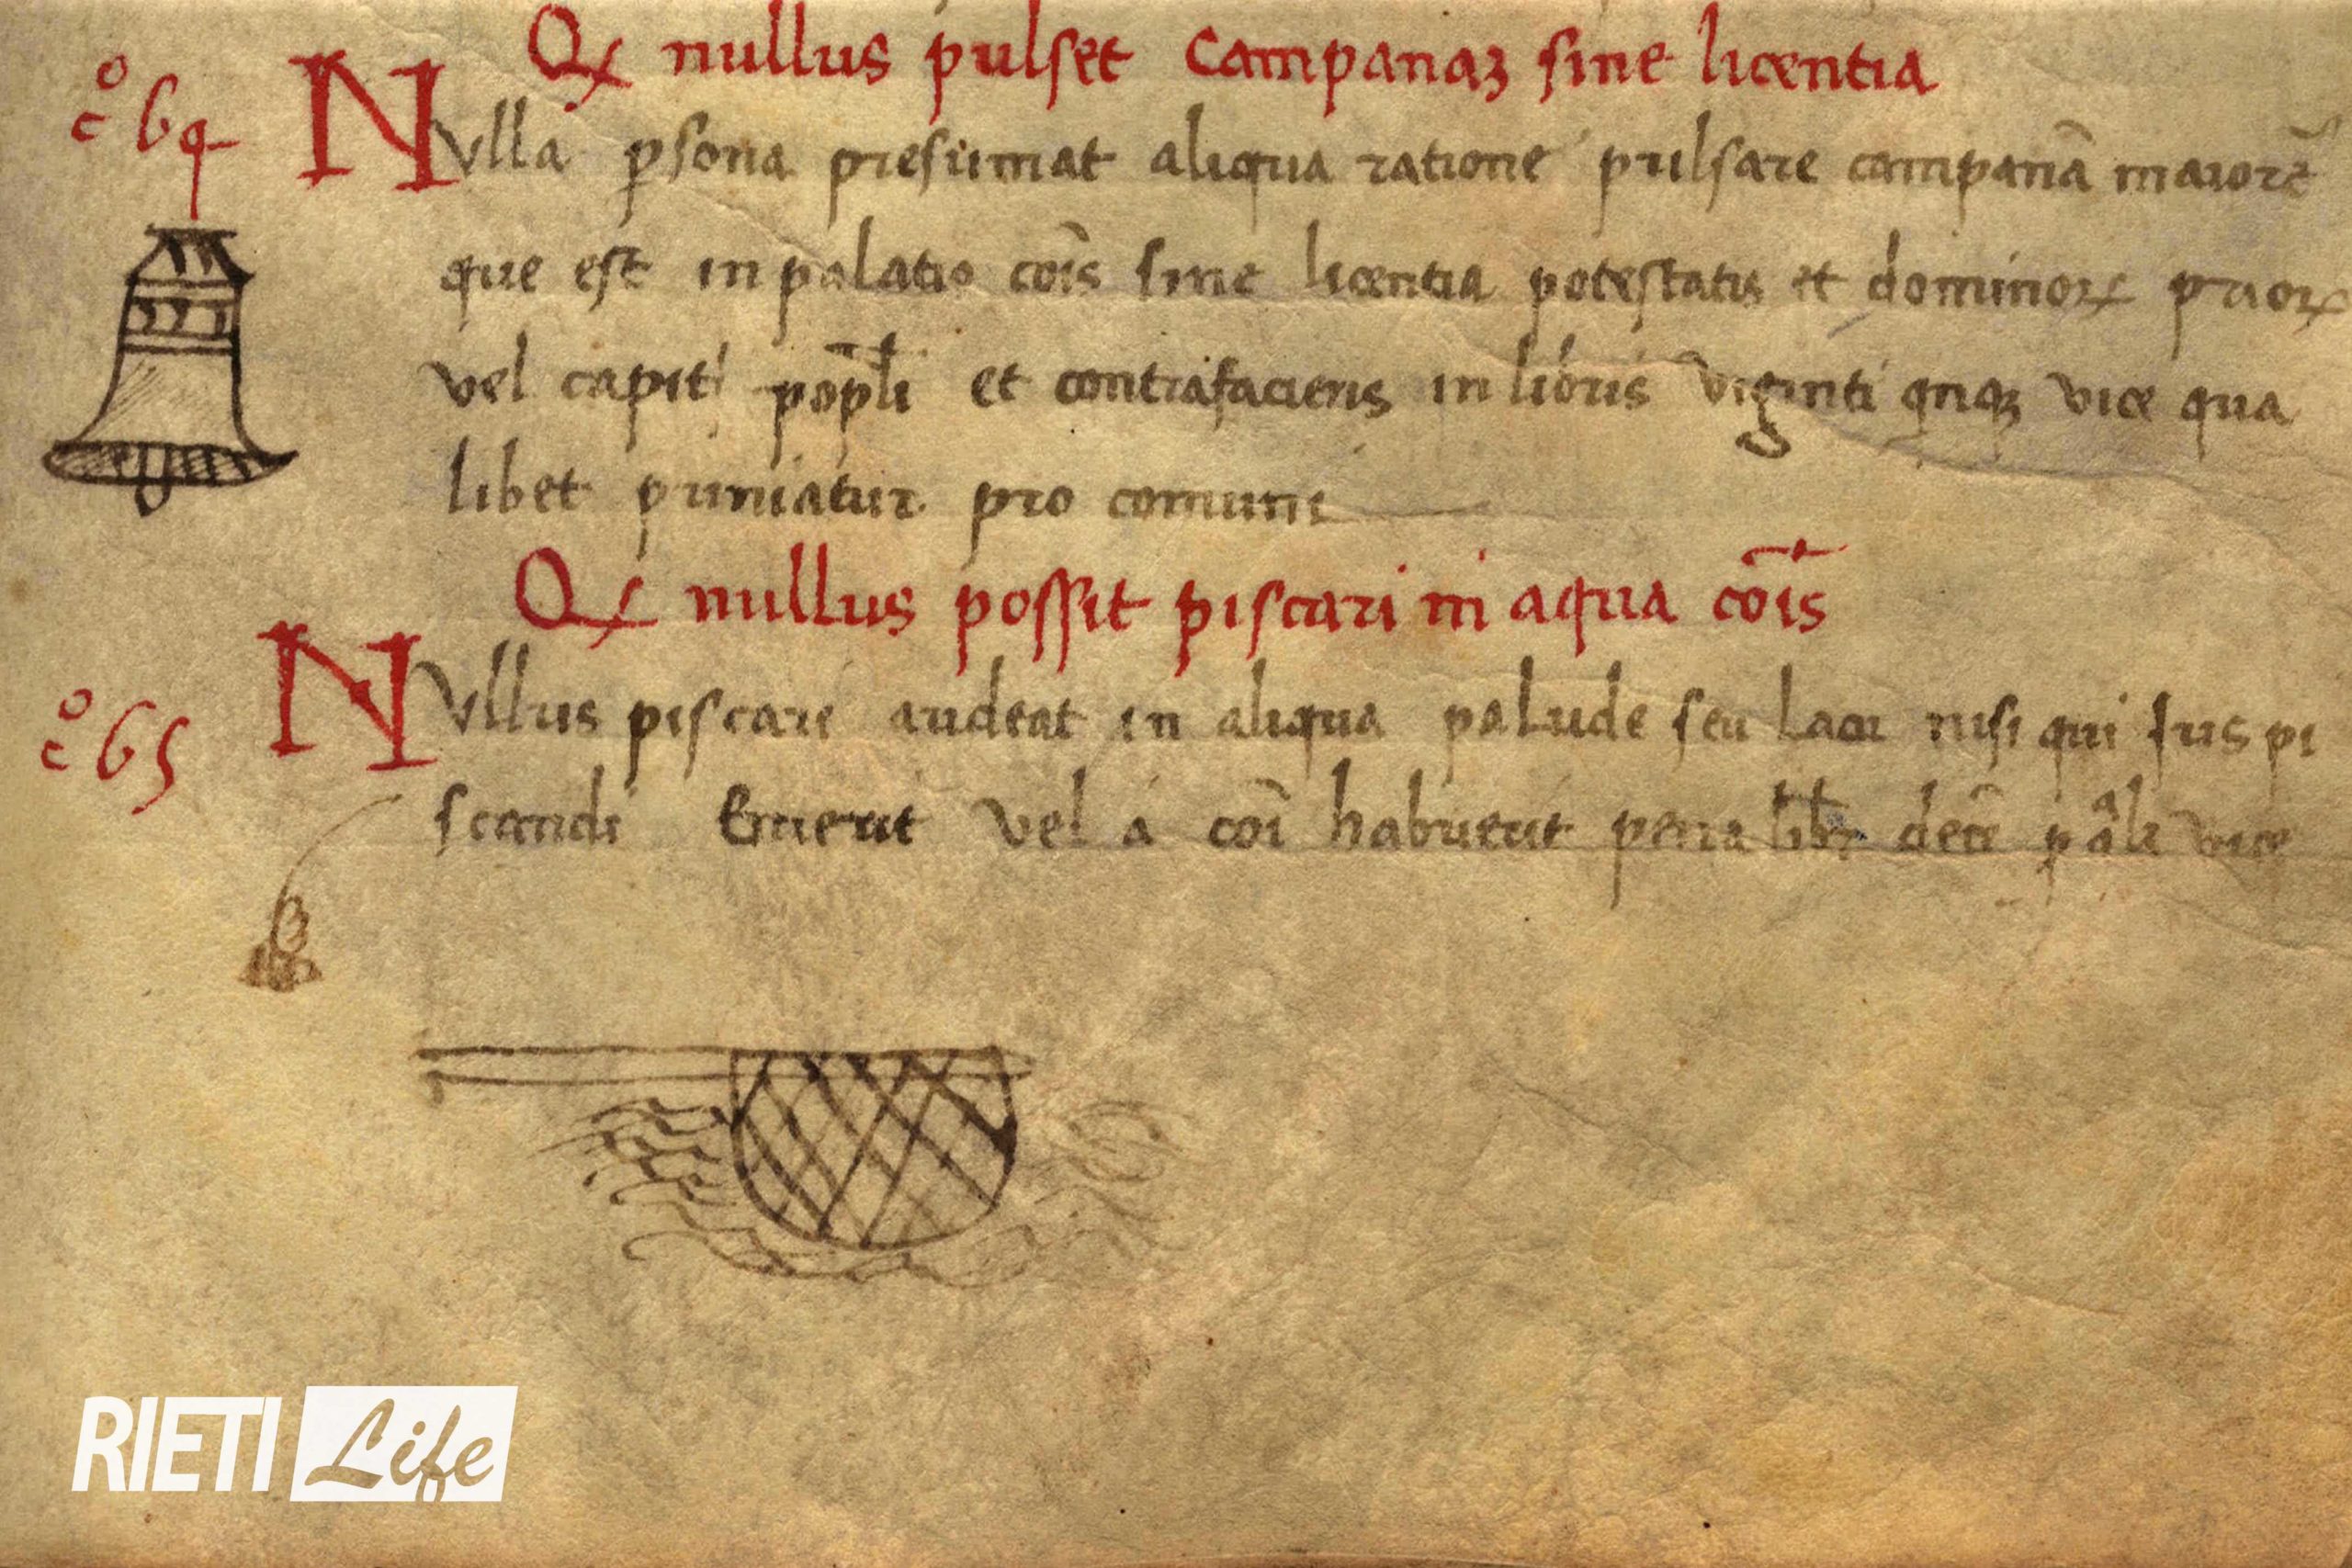 Qꝝ nullus pulset Campanaꝫ sine licentia
cº 64
Nvlla ꝑsona presumat aliqua ratione pulsare campanā maiorē
que est in palatio cōis sine licentia potestatis et dominoꝝ prioꝝ
vel capiti pop̄li et contrafaciens in libris viginti qnqꝫ vice qua
libet puniatur pro comuni
Qꝝ nullus possit piscari in aqua cōis
cº 65
Nvllus piscari audeat in aliqua palude seu lacu nisi qui ius pi
scandi Emerit vel a coī habuerit pena libr decē vice
RIETI Life